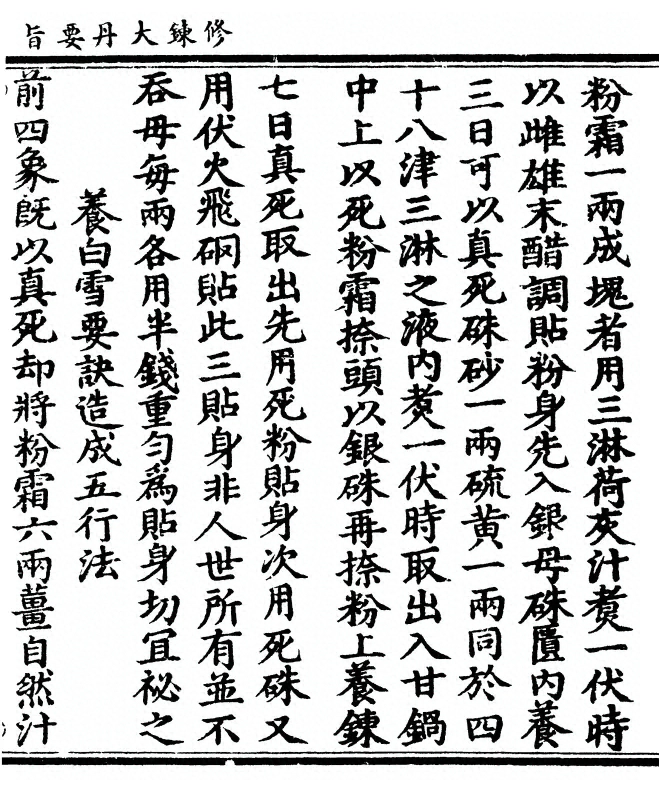 修鍊大丹要旨
粉霜一兩成塊者用三淋荷灰汁煑一伏時
以雌雄末醋調貼粉身先入銀母硃匱内養
三日可以真死硃砂一兩硫黄一兩同於四
十八津三淋之液内煑一伏時取出入甘鍋
中上以死粉霜捺頭以銀硃再捺粉上養鍊
七日真死取出先用死粉貼身次用死硃又
用伏火飛硇貼此三貼身非人世所有並不
吞母每兩各用半錢重勻爲貼身切宜祕之
養白雪要訣造成五行法
前四象旣以真死却將粉霜六兩薑自然汁